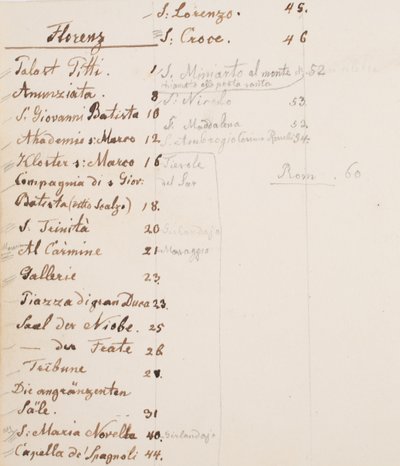 Florenz
Palast Pitti. 1
Anunziata. 8
S: Giovanni Batista 10
Akademie s: Marco 12
Kloster s: Marco 16
Compagnia di s Giov:
Batista (detto Scalzo) 18.
S. Trinità 20 Girlandajo
Al Cármine 21 Masaggio
Gallerie 23.
Piazza di gran Duca 23.
Saal der Niobe. 25
— der Frate 26
Tribune
Die angränzenten
Säle. 31
S: Maria Novella 40. Girlandajo
Capella de' Spagnoli 44.
S: Lorenzo. 45.
S: Croce. 46
S. Miniato al monte 52
S: Nicolo 53.
S. Maddalena 53.
S. Ambrogio Cosimo Roselli 54.
Rom 60